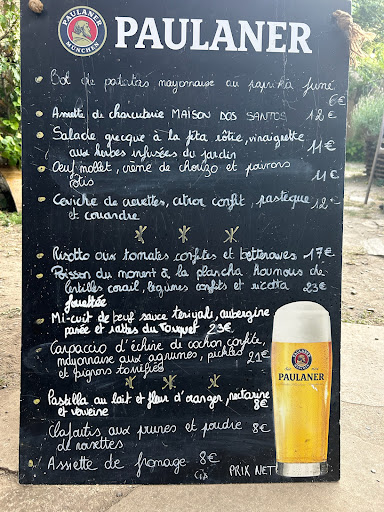 PAULANER
PAULANER
MÜNCHEN
Bol de patatas mayonnaise au paprika fumé
6€
Assiette de charcuterie MAISON DOS SANTOS 12€
Salade grecque à la féta rôtie, vinaigrette
aux herbes infusées du jardin 11€
Œuf mollet, crème de chorizo et poivrons
rôtis 11€
Ceviche de crevettes, citron confit, pastèque
et coriandre 12€
Risotto aux tomates confites et betteraves 17€
Poisson du moment à la plancha houmous de
lentilles corail, légumes confits et ricotta 23€
fouettée
Mi-cuit de bœuf sauce teriyaki, aubergine
panée et rattes du Touquet 23€
Carpaccio d'échine de cochon confite,
mayonnaise aux agrumes, pickles
et pignons torréfiés 21€
Pastilla au lait et fleur d'oranger, nectarine
et verveine 8€
Clafoutis aux prunes et poudre
de noisettes 8€
Assiette de fromage 8€
PRIX NET
PAULANER